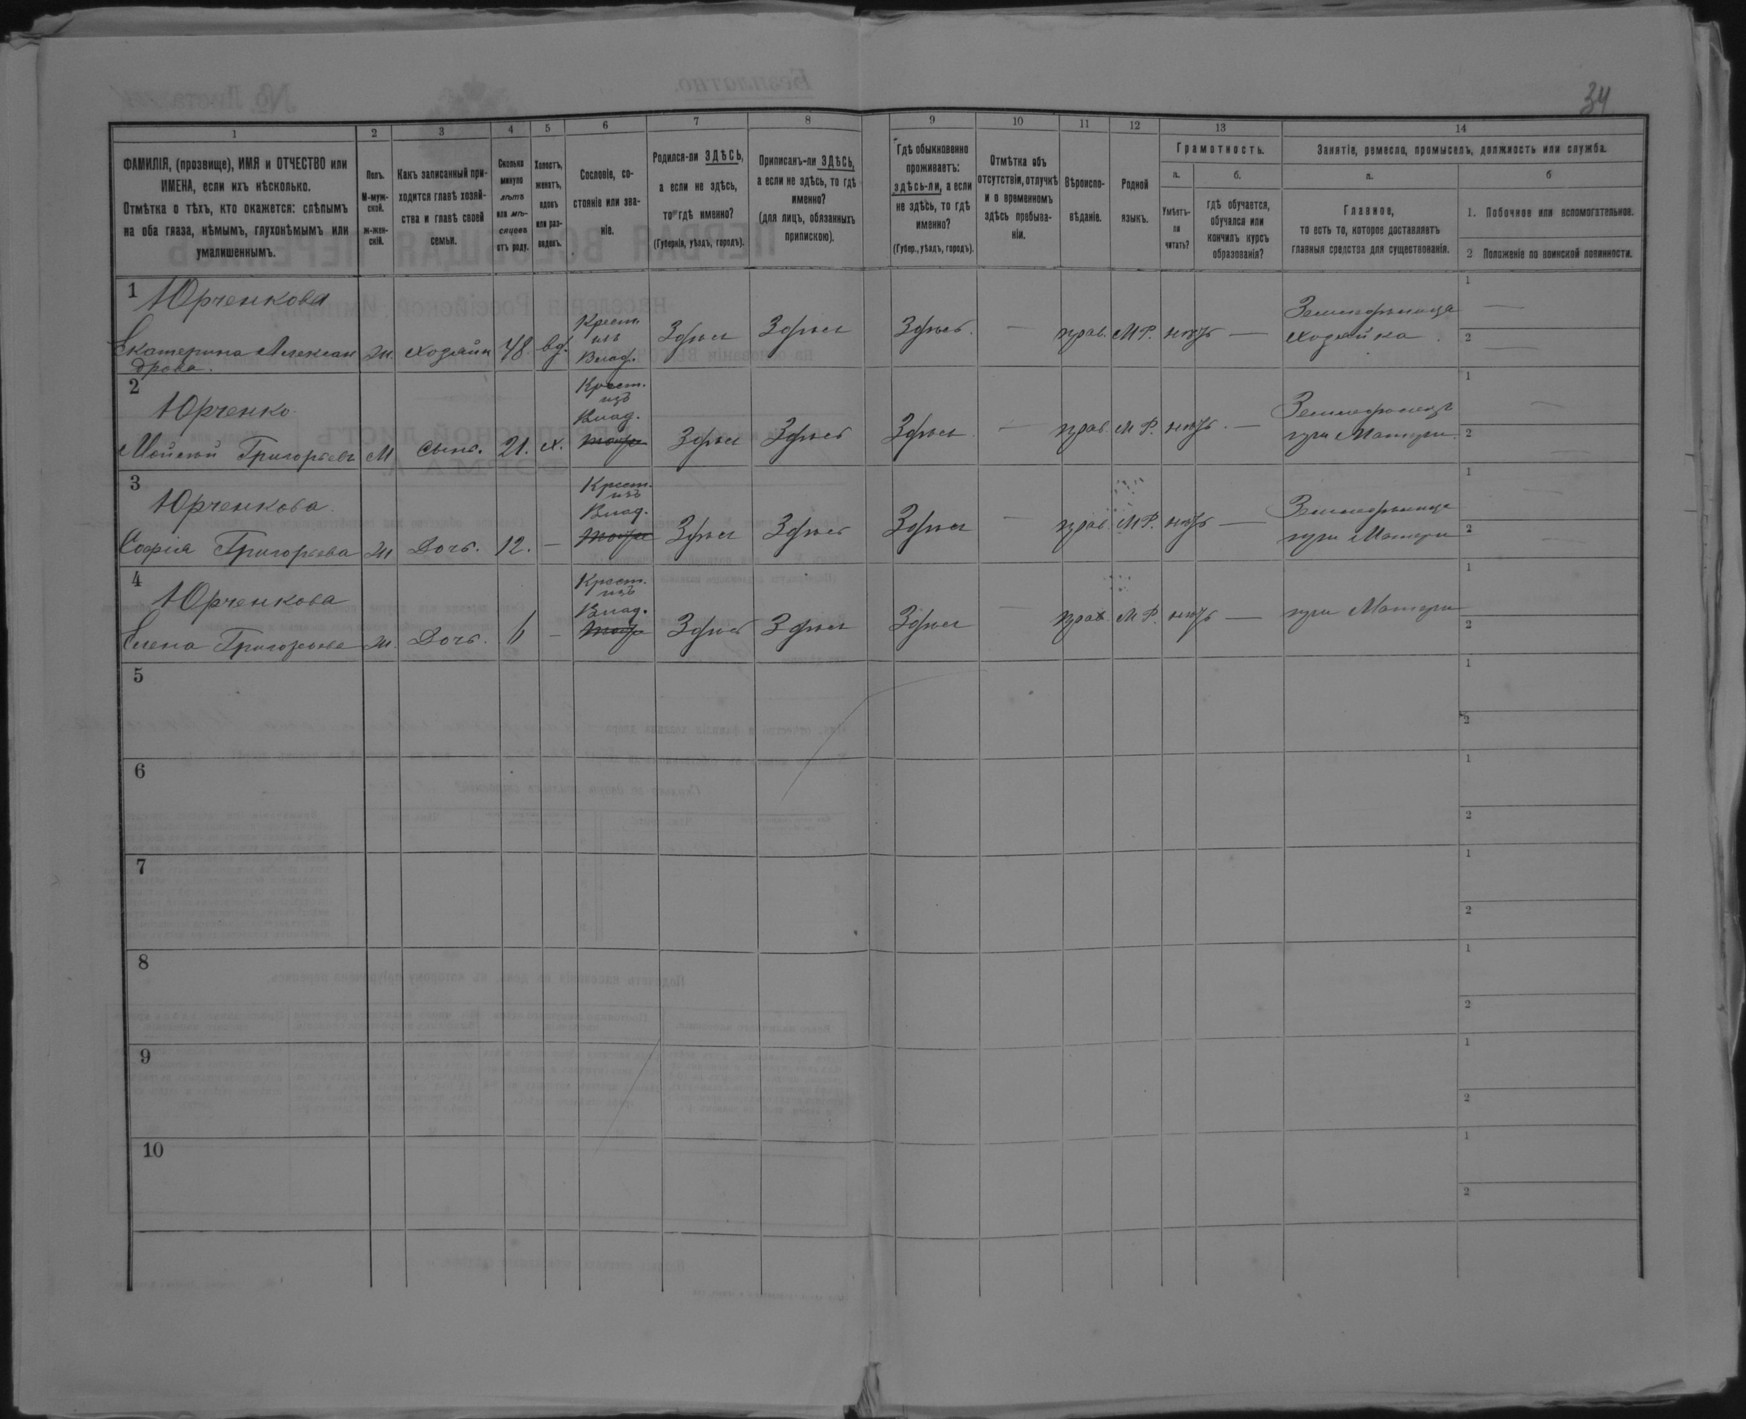 34
1 2 3 4 5 6 7 8 9 10 11 12 13 14
ФАМИЛІЯ, (прозвище), ИМЯ и ОТЧЕСТВО или
ИМЕНА, если ихъ нѣсколько.
Отмѣтка о тѣхъ, кто окажется: слѣпымъ
на оба глаза, нѣмымъ, глухонѣмымъ или
умалишеннымъ.
Полъ.
М-муж-
ской.
Ж-жен-
скій.
Какъ записанный при-
ходится главѣ хозяй-
ства и главѣ своей
семьи.
Сколько
минуло
лѣтъ
или мѣ-
сяцевъ
отъ роду.
Холостъ,
женатъ,
вдовъ
или раз-
веденъ.
Сословіе, со-
стояніе или зва-
ніе.
Родился-ли ЗДѢСЬ,
а если не здѣсь,
то гдѣ именно?
(Губернія, уѣздъ, городъ).
Приписанъ-ли ЗДѢСЬ,
а если не здѣсь, то гдѣ
именно?
(для лицъ, обязанныхъ
припискою).
Гдѣ обыкновенно
проживаетъ:
здѣсь-ли, а если
не здѣсь, то гдѣ
именно?
(Губер., уѣздъ, городъ).
Отмѣтка объ
отсутствіи, отлучкѣ
и о временномъ
здѣсь пребыва-
ніи.
Вѣроиспо-
вѣданіе.
Родной
языкъ.
Грамотность.
а.
Умѣетъ-
ли
читать?
б.
гдѣ обучается,
обучался или
кончилъ курсъ
образованія?
Занятіе, ремесло, промыселъ, должность или служба.
а.
Главное,
то есть то, которое доставляетъ
главныя средства для существованія.
б
1. Побочное или вспомогательное.
2 Положеніе по воинской повинности.
1 Юрченкова
Екатерина Александрова ж хозяйка 48 вд. Крест. изъ Влад. Здѣсь Здѣсь Здѣсь — прав. М.Р. нѣтъ — Земледѣлица хозяйка 1 — 2 —
2 Юрченко
Мойсей Григорьевъ м сынъ. 21. х. Крест. изъ Влад. Здѣсь Здѣсь Здѣсь — прав. М.Р. нѣтъ — Земледѣлецъ при Матери 1 — 2 —
3 Юрченкова
Софія Григорьева ж Дочь. 12. — Крест. изъ Влад. Здѣсь Здѣсь Здѣсь — прав. М.Р. нѣтъ — Земледѣлица при Матери 1 — 2 —
4 Юрченкова
Елена Григорьева ж. Дочь. 6 — Крест. изъ Влад. Здѣсь Здѣсь Здѣсь — прав М.Р. нѣтъ — при Матери 1 2
5 1
2
6 1
2
7 1
2
8 1
2
9 1
2
10 1
2